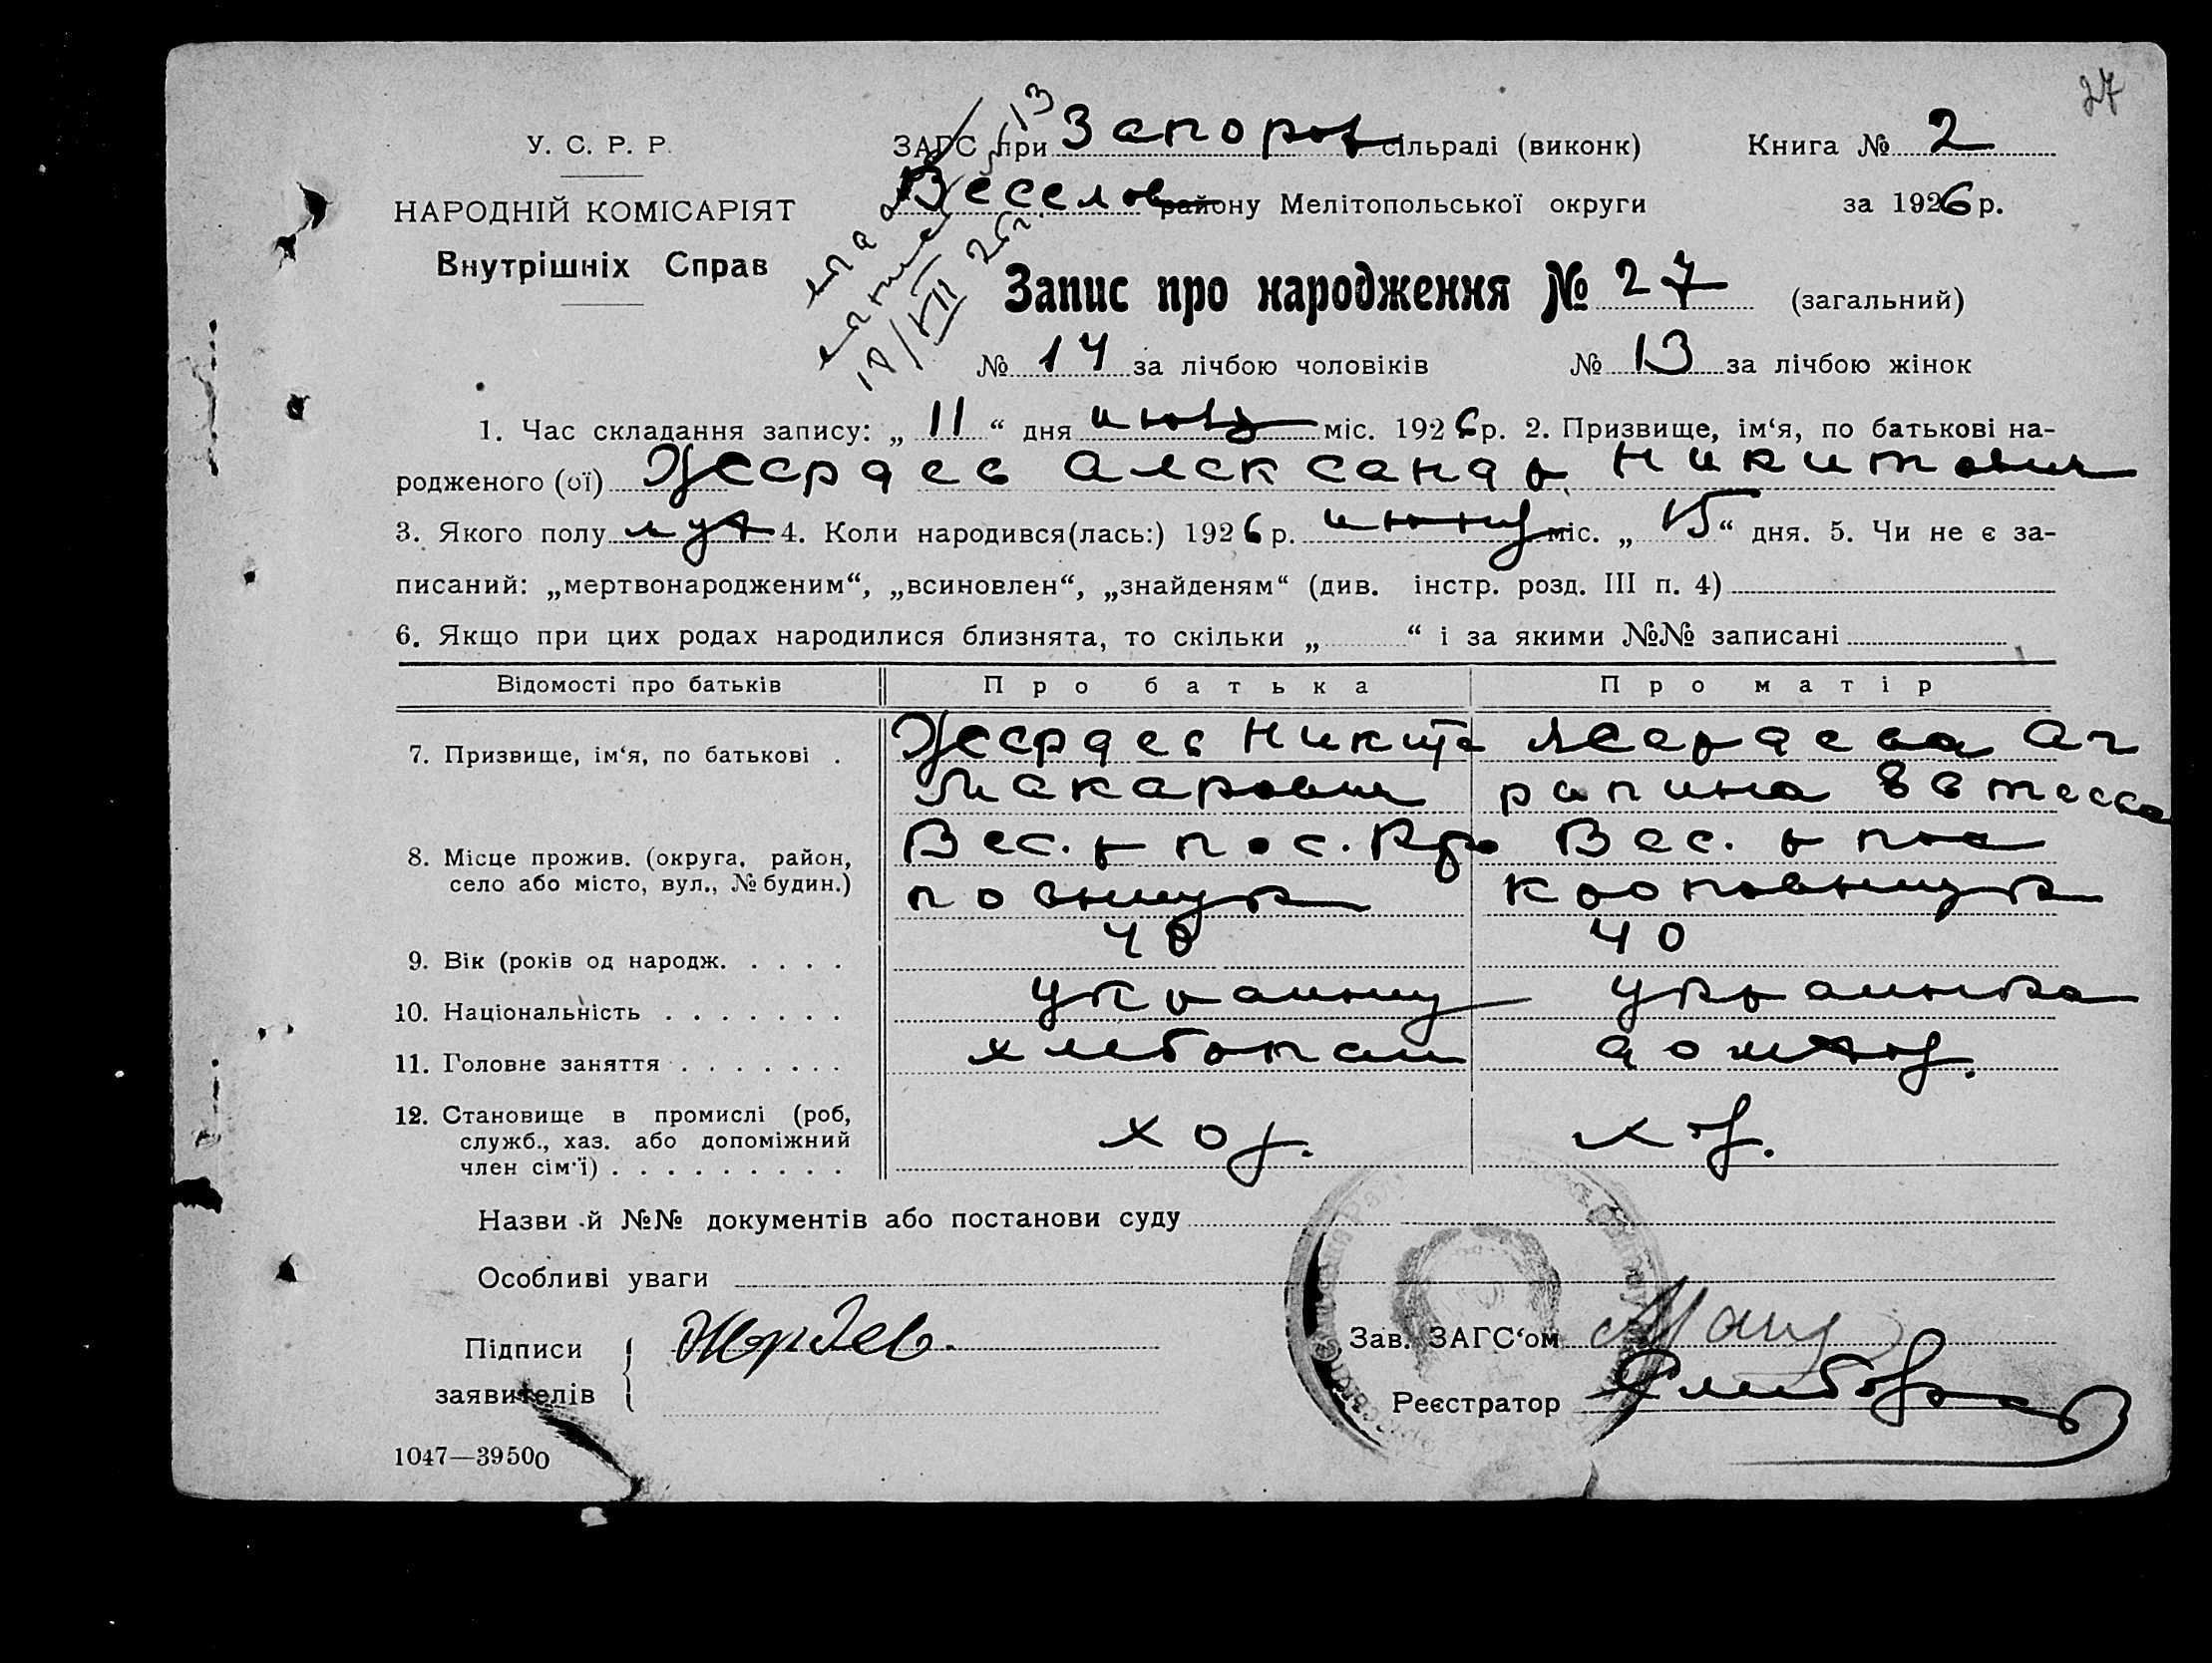 27
У. С. Р. Р.
ЗАГС при Запоров сільраді (виконк)
Книга № 2
НАРОДНІЙ КОМІСАРІЯТ
Веселов району Мелітопольської округи
за 1926 р.
Внутрішніх Справ
Запис про народження № 27 (загальний)
№ 14 за лічбою чоловіків № 13 за лічбою жінок
1. Час складання запису: „ 11 “ дня июля міс. 1926 р. 2. Призвище, ім‘я, по батькові на-
родженого (ої) Жердев Александр Никитович
3. Якого полу муж 4. Коли народився(лась:) 1926 р. июня міс. „ 15 “ дня. 5. Чи не є за-
писаний: „мертвонародженим“, „всиновлен“, „знайденям“ (див. інстр. розд. III п. 4)
6. Якщо при цих родах народилися близнята, то скільки „ “ і за якими №№ записані
Відомості про батьків Про батька Про матір
7. Призвище, ім‘я, по батькові . Жердев Никита Жердева Аг
Макарович рипина Евтеевна
8. Місце прожив. (округа, район, Вес. р пос. Кро Вес. р пос
село або місто, вул., № будин.) повницк кроповницк
9. Вік (років од народж. . . . . 40 40
10. Національність . . . . . . . украинец украинка
11. Головне заняття . . . . . . . хлебопаш домхоз.
12. Становище в промислі (роб, хоз. хоз.
служб., хаз. або допоміжний
член сім‘ї) . . . . . . . . .
Назви й №№ документів або постанови суду
Особливі уваги
Підписи
заявителів
Жердев.
Зав. ЗАГС‘ом
Реєстратор
1047—39500